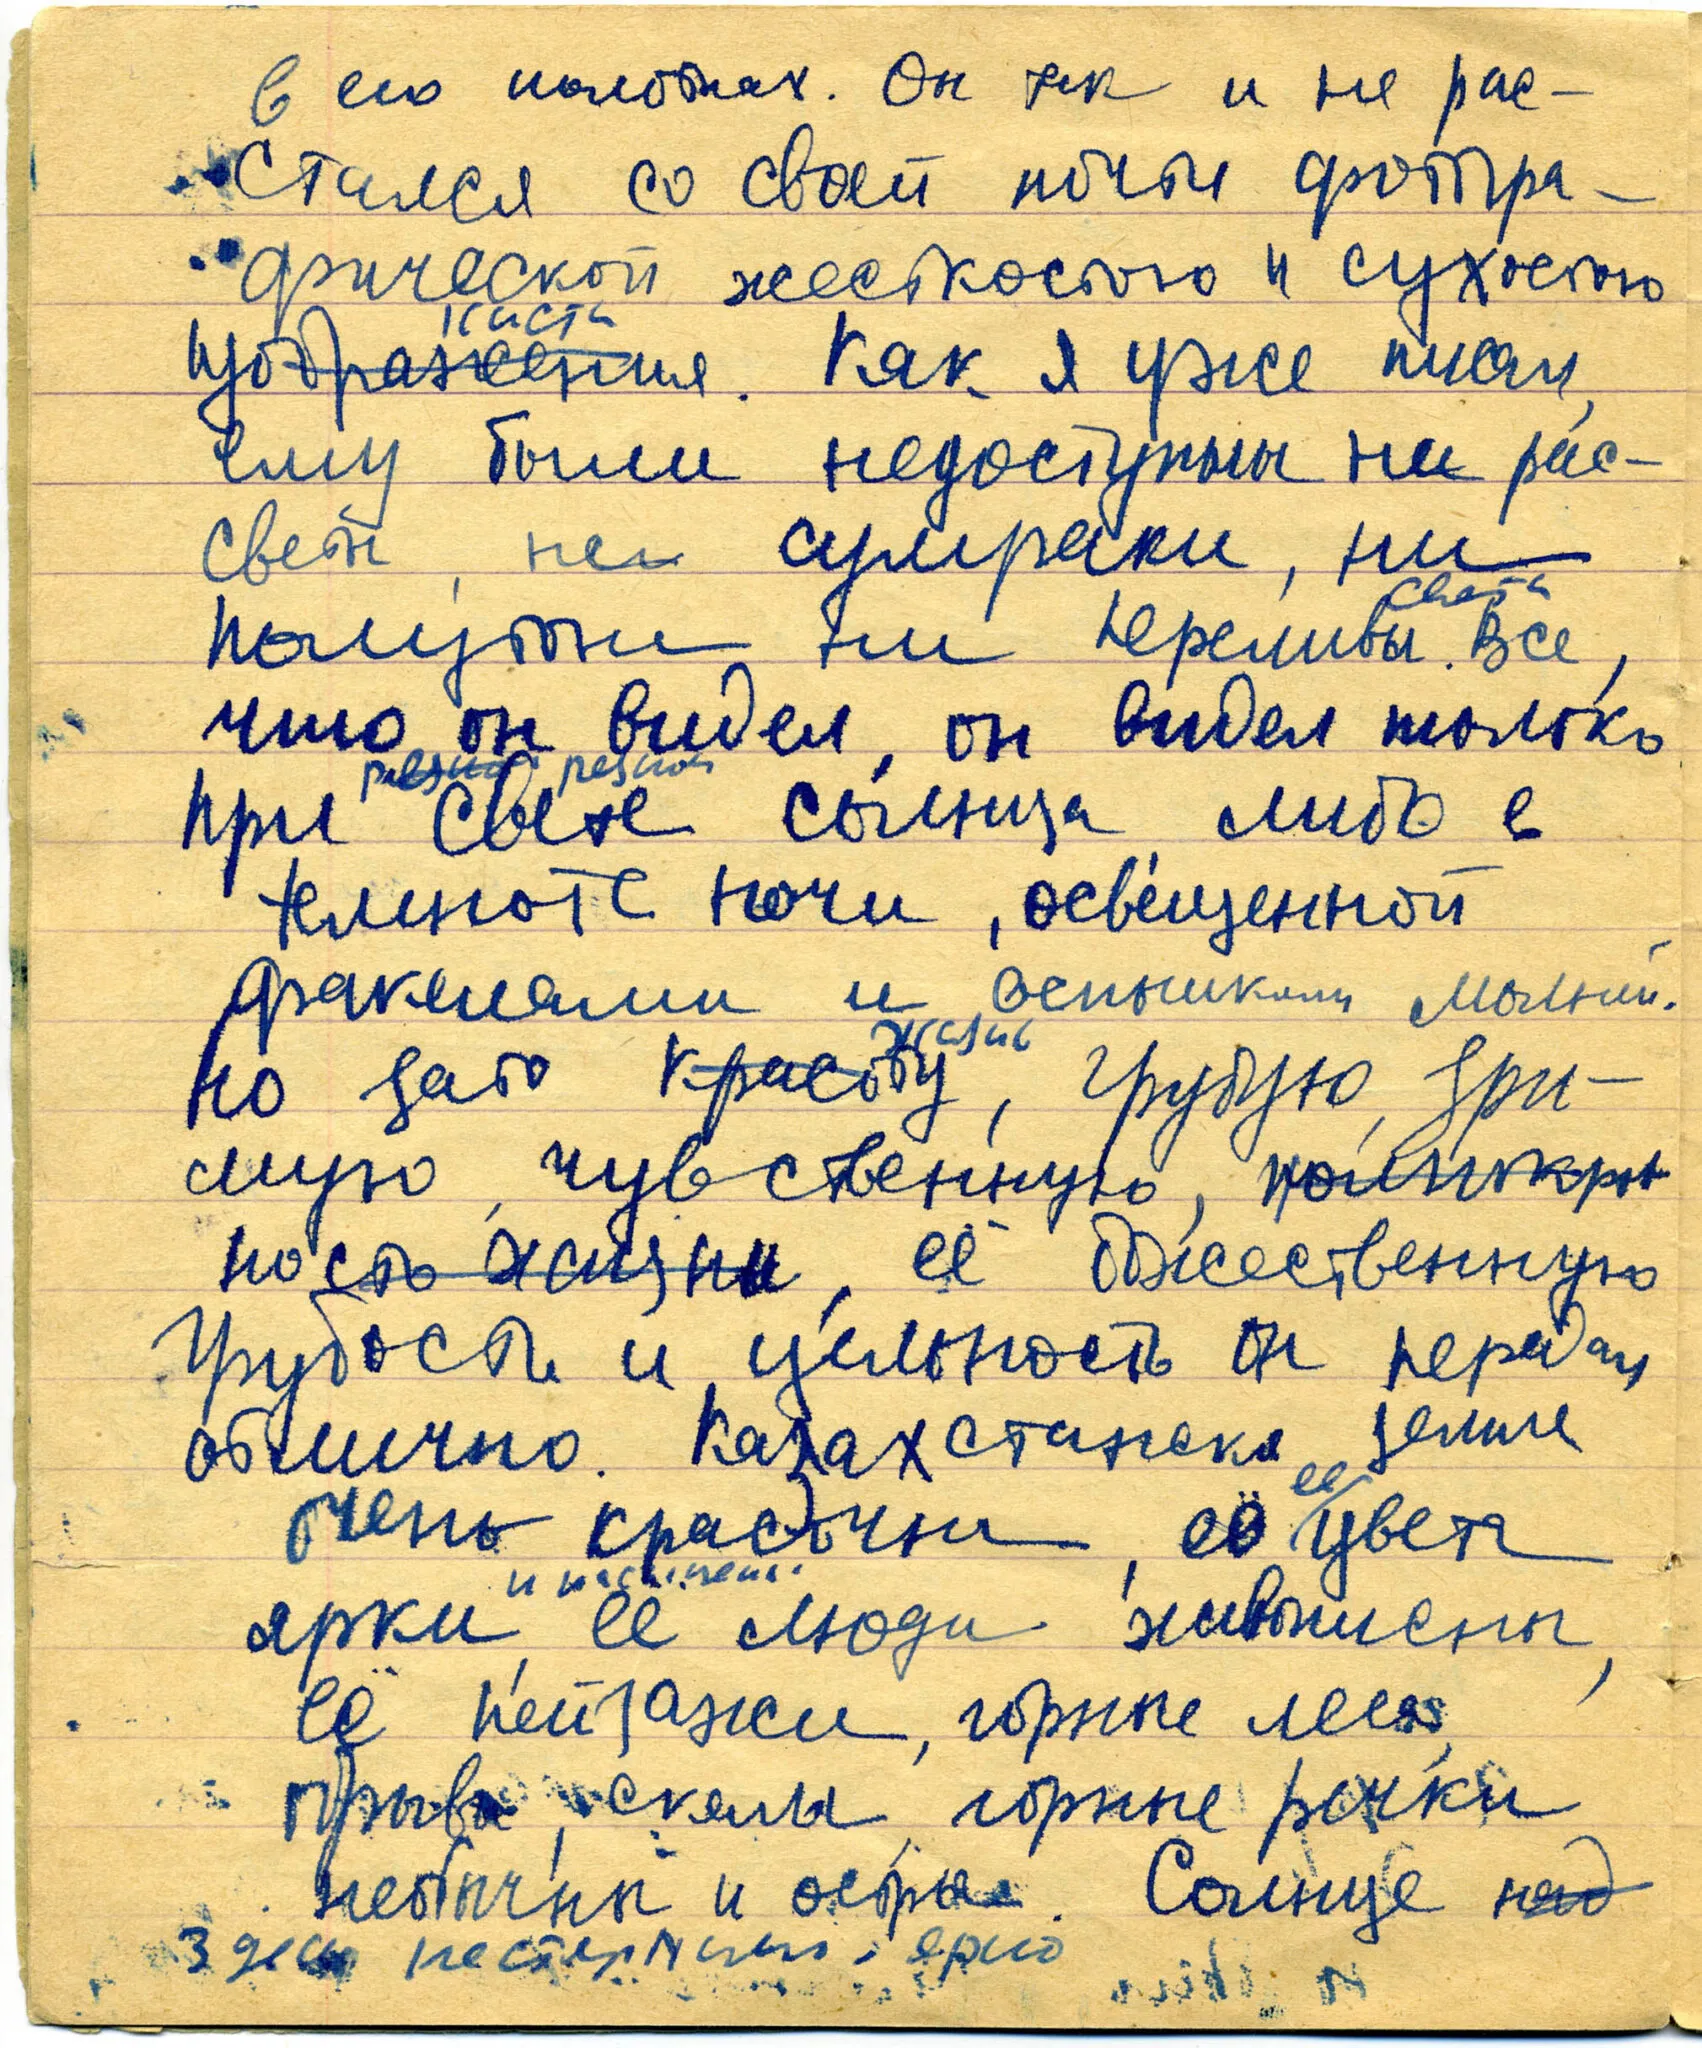 в его полотнах. Он так и не рас-
стался со своей почти фотогра-
фической жесткостью и сухостью
кисти
изображения. Как я уже писал,
ему были недоступны ни рас-
светы, ни сумраки, ни
света
полутона ни переливы. Все,
что он видел, он видел только
резком резком
при свете солнца либо в
темноте ночи, освещенной
факелами и вспышками молний.
жизнь
Но зато красоту, грубую, зри-
мую, чувственную,
ность жизни, её божественную
грубость и цельность он передал
отлично. Казахстанская земля
ее
очень красочна, её цвета
и насыщены
ярки, её люди живописны,
её пейзажи, горные леса,
обрывы, скалы, горные речки
необычны и остры. Солнце над
Здесь нестерпимо ярко